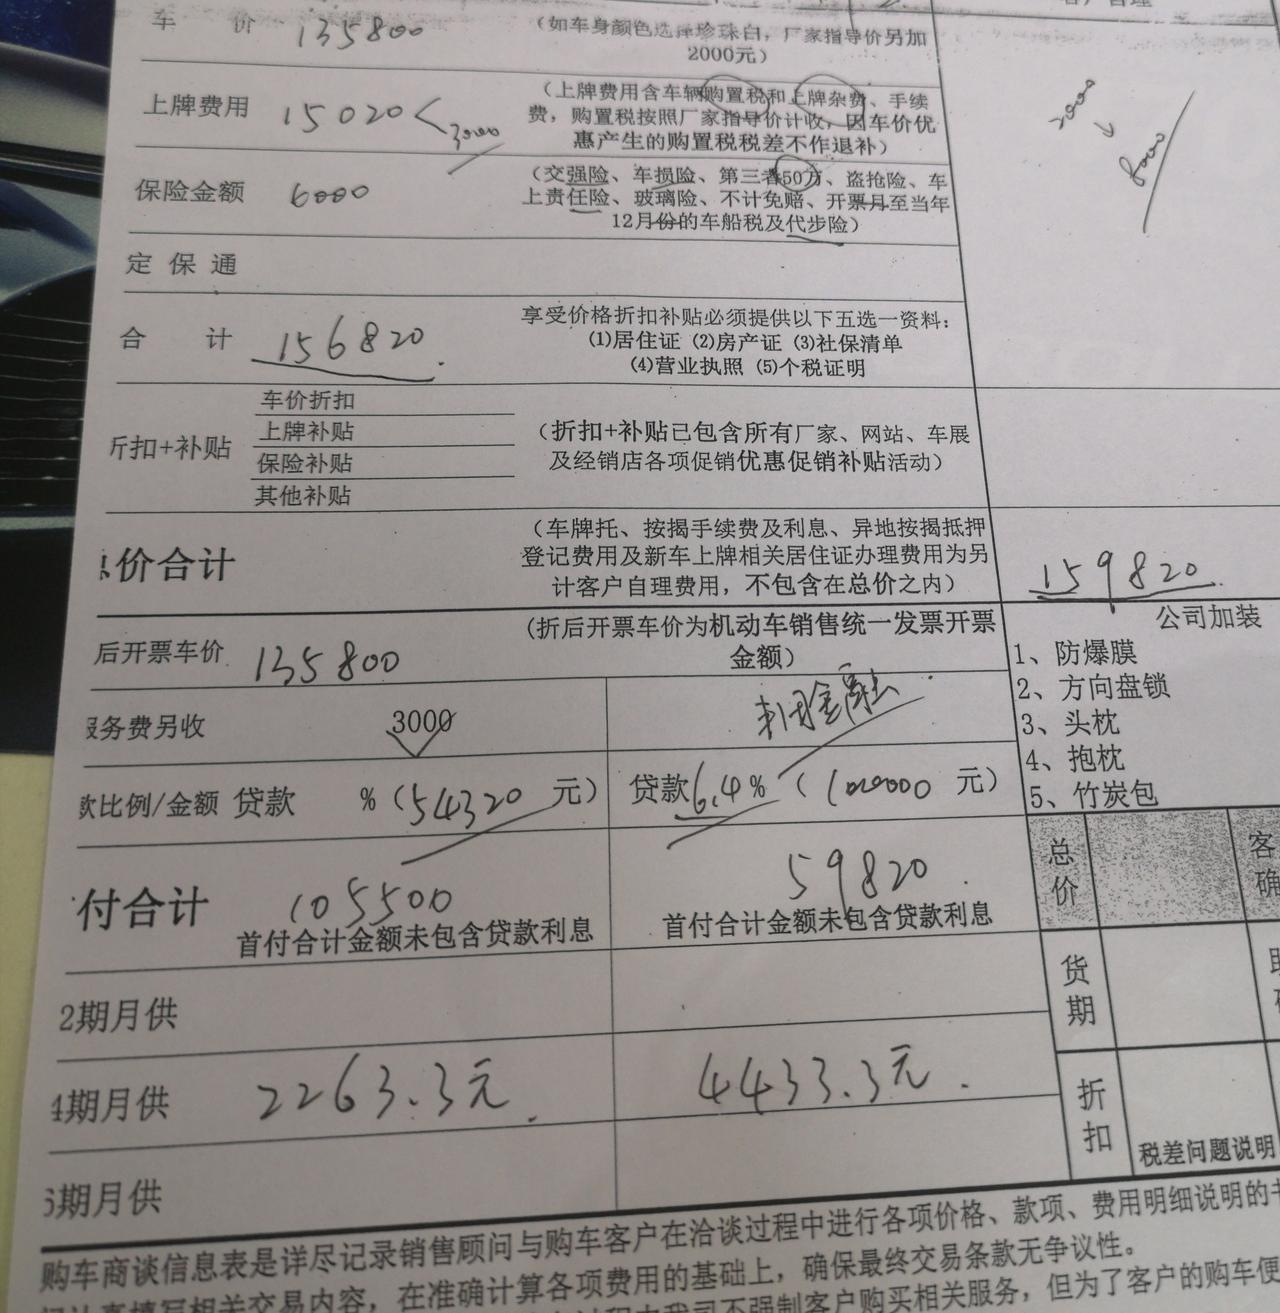 车 价 135800 (如车身颜色选择珍珠白，厂家指导价另加
2000元)
上牌费用 15020 < 3000 (上牌费用含车辆购置税和上牌杂费、手续
费，购置税按照厂家指导价计收，因车价优
惠产生的购置税税差不作退补)
2000
8000
保险金额 6000 (交强险、车损险、第三者50万、盗抢险、车
上责任险、玻璃险、不计免赔、开票月至当年
12月份的车船税及代步险)
定 保 通
合 计 156820. 享受价格折扣补贴必须提供以下五选一资料：
(1)居住证 (2)房产证 (3)社保清单
(4)营业执照 (5)个税证明
折扣+补贴
车价折扣
上牌补贴
保险补贴
其他补贴
(折扣+补贴已包含所有厂家、网站、车展
及经销店各项促销优惠促销补贴活动)
价合计 (车牌托、按揭手续费及利息、异地按揭抵押
登记费用及新车上牌相关居住证办理费用为另
计客户自理费用，不包含在总价之内)
159820.
后开票车价 135800 (折后开票车价为机动车销售统一发票开票
金额)
公司加装
1、防爆膜
2、方向盘锁
3、头枕
4、抱枕
5、竹炭包
服务费另收 3000 金融
款比例/金额 贷款 %(54320 元) 贷款6.4% (100000 元)
付合计 105500 59820.
首付合计金额未包含贷款利息 首付合计金额未包含贷款利息
2期月供
4期月供 2263.3元. 4433.3元.
6期月供
总价
客
确
货期
折扣
税差问题说明
购车商谈信息表是详尽记录销售顾问与购车客户在洽谈过程中进行各项价格、款项、费用明细说明的书
填写相关交易内容，在准确计算各项费用的基础上，确保最终交易条款无争议性。
我司不强制客户购买相关服务，但为了客户的购车便